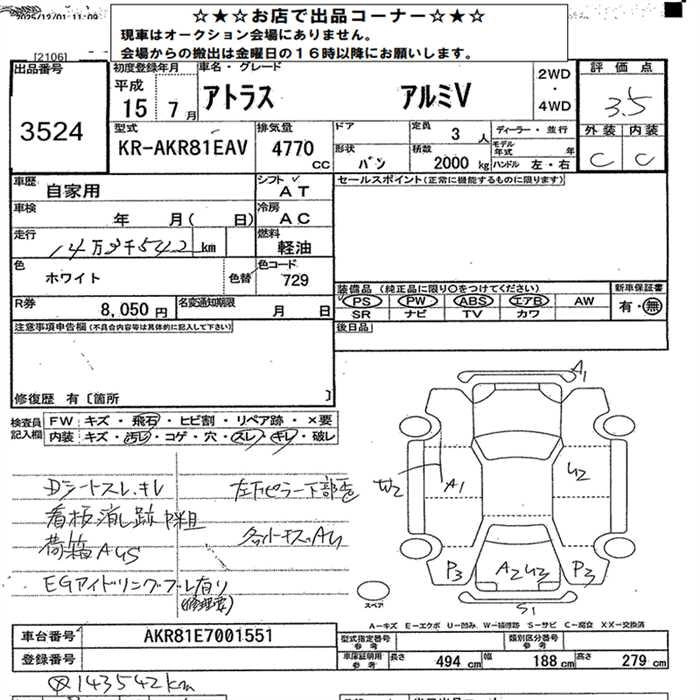 2025/12/01 11:09
☆★☆お店で出品コーナー☆★☆
現車はオークション会場にありません。
会場からの搬出は金曜日の１６時以降にお願いします。
[2106]
出品番号
3524
初度登録年月
平成
15年 7月
車名・グレード
アトラス アルミV
2WD
・
4WD
評価点
3.5
外装 内装
C C
型式
KR-AKR81EAV
排気量
4770 CC
ドア
形状
バン
定員
3人
積数
2000 kg
ディーラー・並行
モデル年式 年
ハンドル 左・右
車歴
自家用
シフト
AT
車検
年 月( 日)
冷房
AC
走行
14万3千542 km
燃料
軽油
色
ホワイト
色替
色コード
729
R券
8,050円
名変通知期限
月 日
セールスポイント(正常に機能するものに限ります)
装備品 (純正品に限り○をつけてください)
PS PW ABS エアB AW
SR ナビ TV カワ
新車保証書
有・無
後日品
注意事項申告欄(不具合内容等は具体的に記入して下さい)
修復歴 有〔箇所 〕
検査員記入欄
FW キズ・飛石・ヒビ割・リペア跡・×要
内装 キズ・汚レ・コゲ・穴・スレ・キレ・破レ
Dシートスレ.キレ
看板消し跡
荷箱AUS
EGアイドリング不良有り
(修理要)
左下ピラー下部
A1
W2
A1
U2
P3
A2 U3
P3
S1
スペア
A－キズ E－エクボ U－凹み W－補修跡 S－サビ C－腐食 XX－交換済
車台番号
AKR81E7001551
登録番号
型式指定番号
参考
類別区分番号
参考
車庫証明用
参考
長さ 494 cm 幅 188 cm 高さ 279 cm
143542km